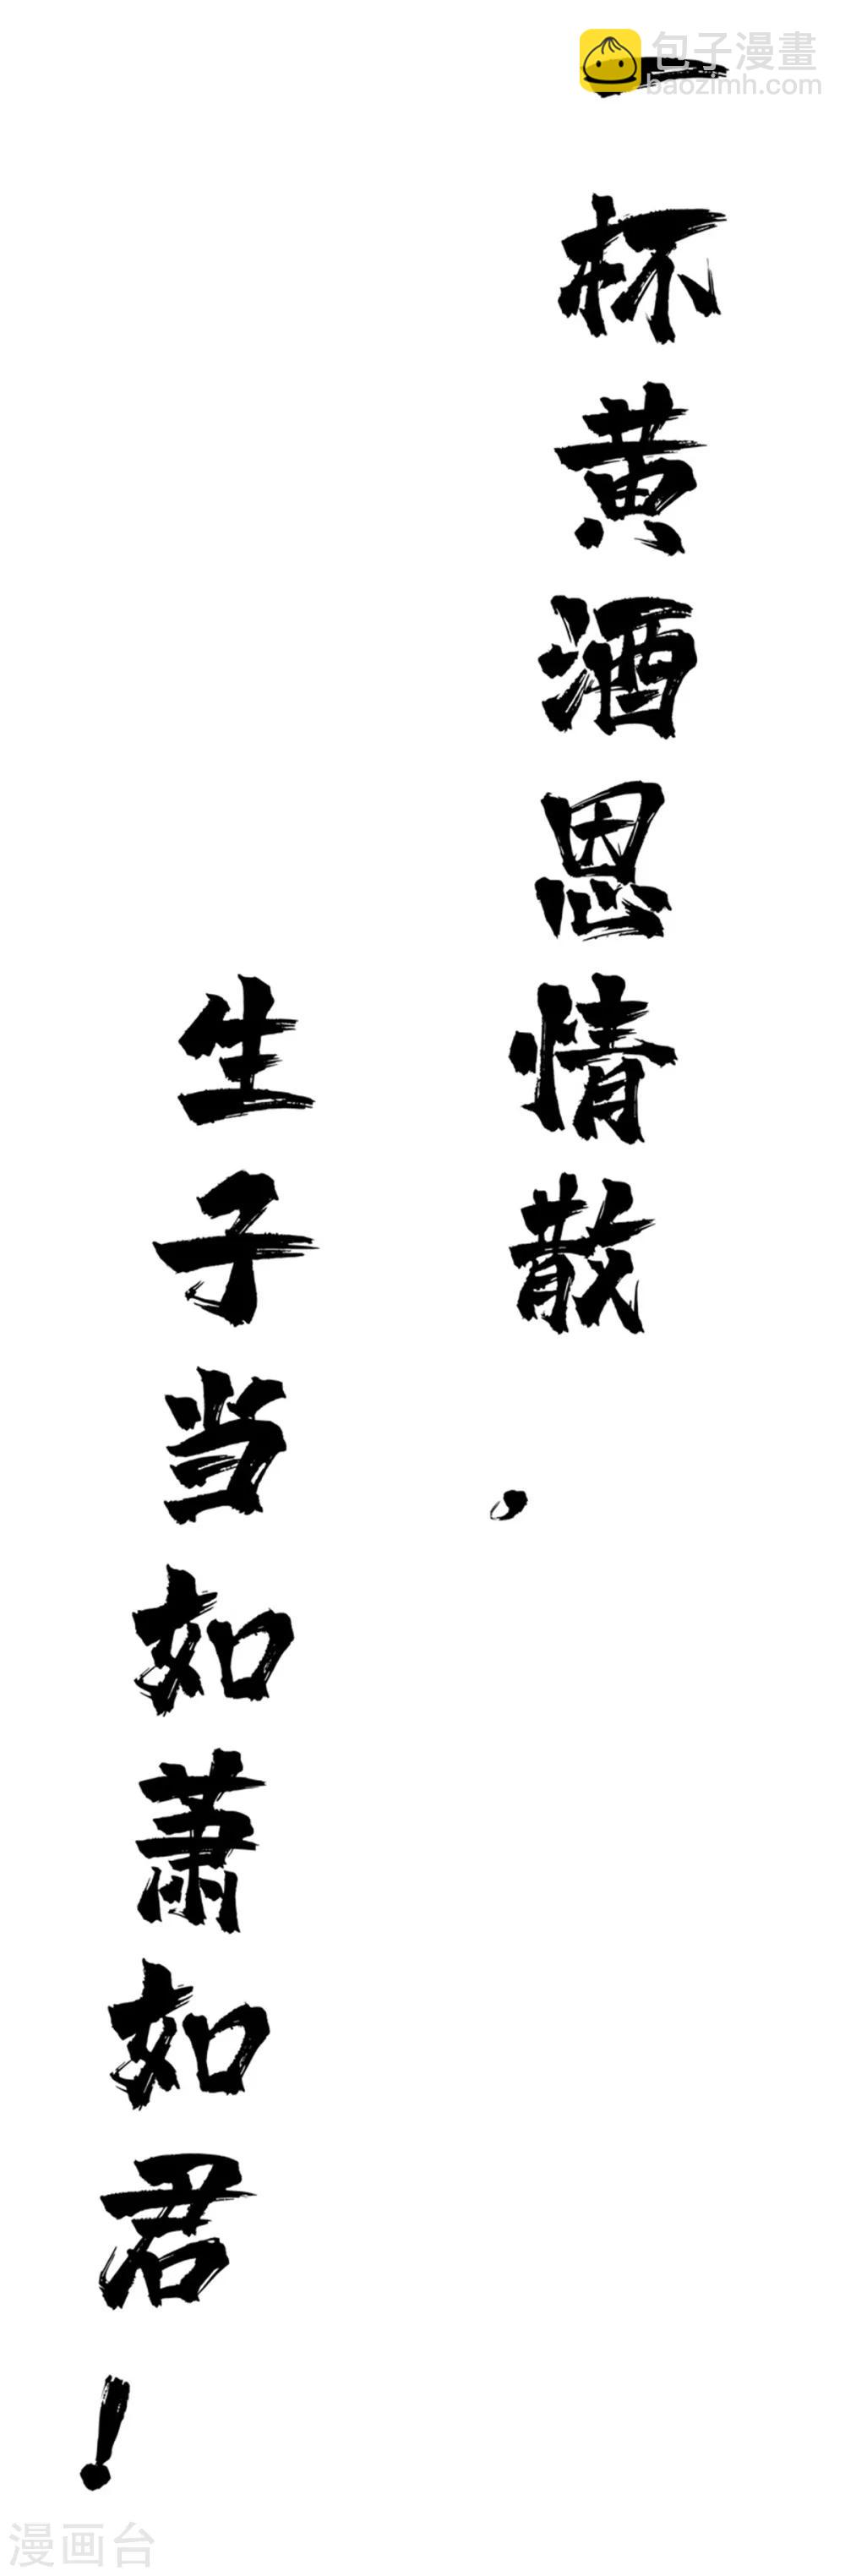 包子漫畫
baozimh.com
一杯黄酒恩情散，
生子当如萧如君！
漫画台